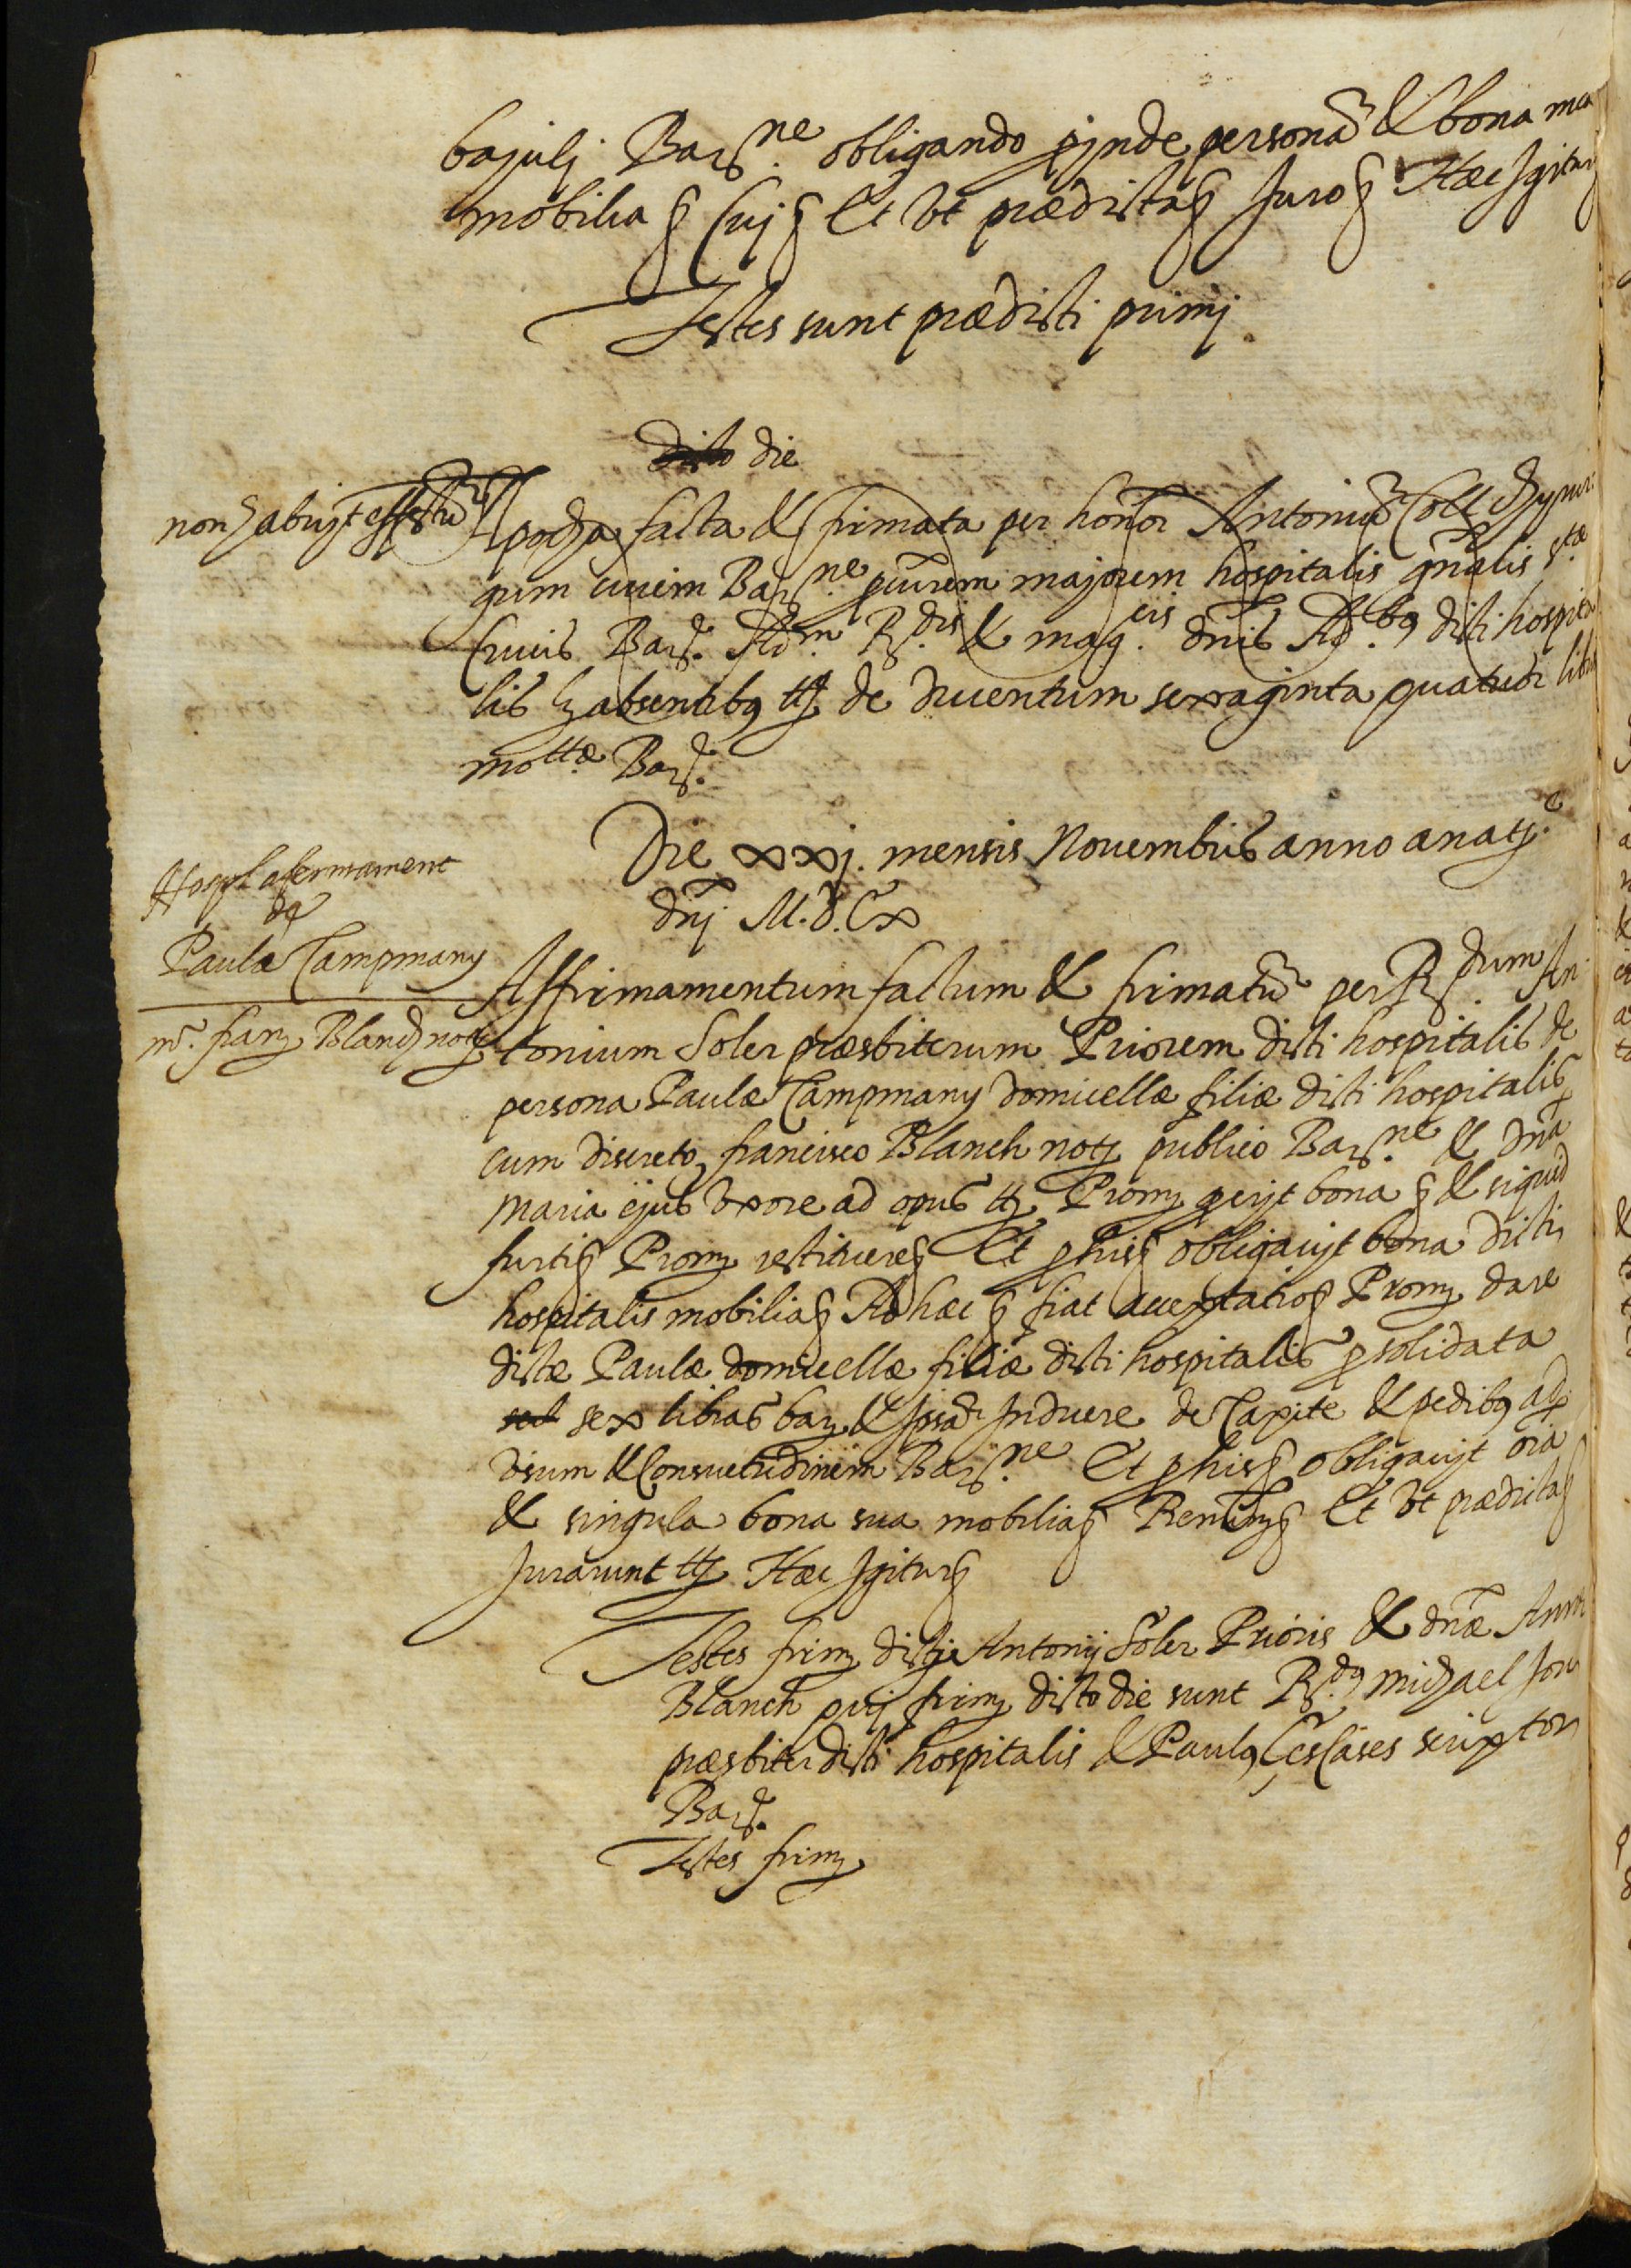 bajulj Bar.ne obligando proinde personã & bona mea
mobilia & suj & Et Vt prædicta & Juro & Hæc Jgitur
Testes sunt prædicti primj
dicto die
non habujt effectũ
Apocha facta & firmata per honor Antoniũ Coll
ciuem Bar.ne majorem hospitalis gñalis S.tæ
Crucis Bar. Adm R.dis & mag.cis dnis Ad.bq dicti hospita
lis absentibq & de ducentum sexaginta quatuor libris
mo.ttæ Bar.
Die xxj. mensis Nouembris anno a natte
dñj M.D.Cx
Hospl afermament
de
Paula Campmany
m.o franc Blanch nott
Affirmamentum factum & firmatũ per R.dum An
tonium Soler præsbiterum Priorem dicti hospitalis de
persona Paulæ Campmany domicellæ filiæ dicti hospitalis
cum discreto francisco Blanch nott publico Bar.ne & dña
Maria ejus Vxore ad opus & Prom bona & & siquid
furtis Prom restituere & Et p his & obligaujt bona dicti
hospitalis mobilia & Ad hæc & fiat acceptatio & Prom dare
dictæ Paulæ domicellæ filiæ dicti hospitalis p solidata
sex libras bar & Jpsã Jnduere de Capite & pedibq ad
Vsum & Consuetudinem Bar.ne Et p his & obligaujt oia
& singula bona sua mobilia & Ren & Et Vt prædicta &
Jurarunt & Hæc Jgitur &
Testes firm dicti Antonij Soler Prioris & dñæ Annæ
Blanch quj firm dicto die sunt R.dq Michael
præsbiter dicti hospitalis & Paulq Cescases scriptor
Bar.
Testes firm